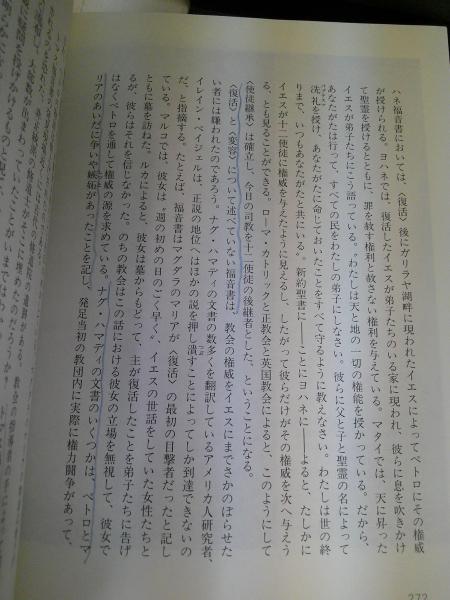 ハネ福音書においては、〈復活〉後にガリラヤ湖畔に現われたイエスによってペトロにその権威
が授けられる。ヨハネでは、復活したイエスが弟子たちのいる家に現われ、彼らに息を吹きかけ
て聖霊を授けるとともに、罪を赦す権利と赦さない権利を与えている。マタイでは、天に昇った
イエスが弟子たちにこう語っている。“わたしは天と地の一切の権能を授かっている。だから、
あなたがたは行って、すべての民をわたしの弟子にしなさい。彼らに父と子と聖霊の名によって
洗礼を授け、あなたがたに命じておいたことをすべて守るように教えなさい。わたしは世の終
りまで、いつもあなたがたと共にいる”。新約聖書に――ことにヨハネに――よると、たしかに
イエスが十二使徒に権威を与えたように見えるし、したがって彼らだけがその権威を次へ与えう
る、とも見ることができる。ローマ・カトリックと正教会と英国教会によると、このようにして
〈使徒継承〉は確立し、今日の司教を十二使徒の後継者とした、ということになる。
〈復活〉と〈変容〉について述べていない福音書は、教会の権威をイエスにまでさかのぼらせた
い者には嫌われたのであろう。ナグ・ハマディの文書の数多くを翻訳しているアメリカ人研究者、
イレイン・ペイジェルは、“正説の地位へはほかの説を押し潰すことによってしか到達できないの
だ”と指摘する。たとえば、福音書はマグダラのマリアが〈復活〉の最初の目撃者だったと記し
ている。マルコでは、彼女は“週の初めの日のごく早く”、イエスの世話をしていた女性たちと
ともに墓を訪ねた。ルカによると、彼女は墓からもどって、主が復活したことを弟子たちに告げ
るが、彼らはそれを信じなかった。のちの教会はこの話における彼女の立場を無視して、彼女で
はなくペトロを通して権威の源を求めている。ナグ・ハマディの文書のいくつかは、ペトロとマ
リアのあいだに争いや嫉妬があったことを記し、発足当初の教団内に実際に権力闘争があって、
272